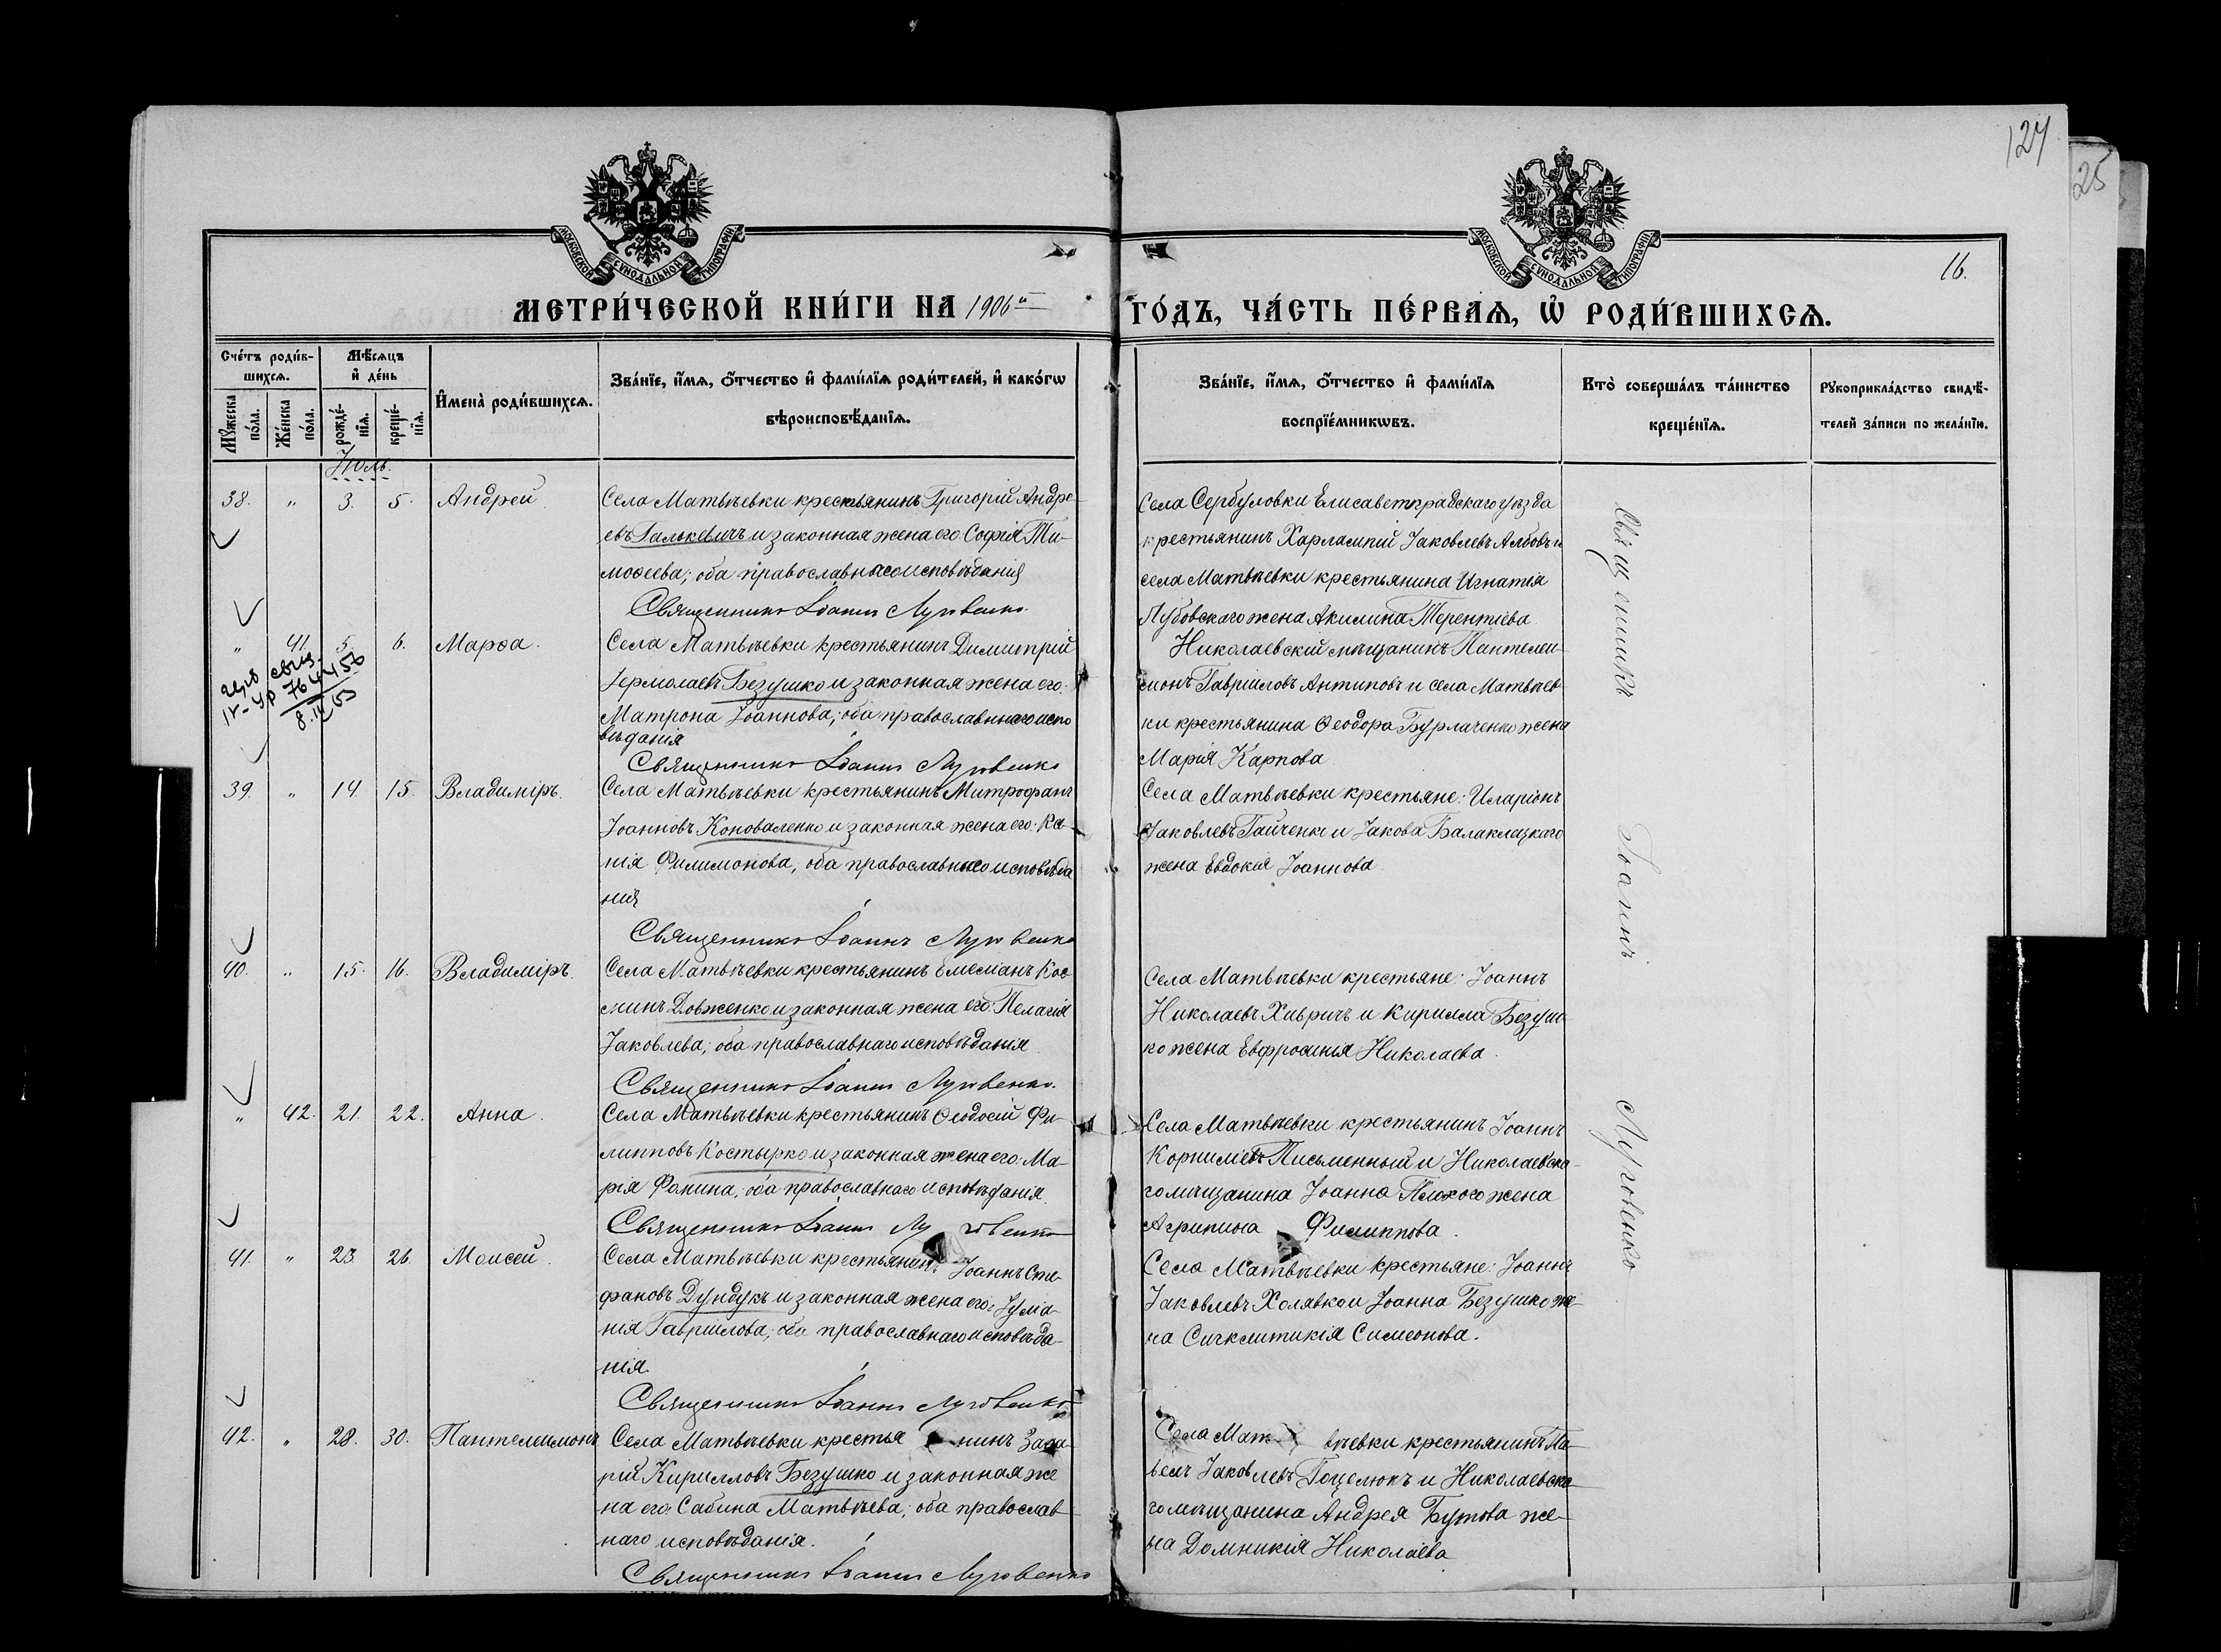 127
25
16.
МОСКОВСКОЙ СѴНОДАЛЬНОЙ ТИПОГРАФІИ
МОСКОВСКОЙ СѴНОДАЛЬНОЙ ТИПОГРАФІИ
МЕТРИ́ЧЕСКОЙ КНИ́ГИ НА 1906й
ГО́ДЪ, ЧА́СТЬ ПЕ́РВАѦ, Ѡ҆ РОДИ́ВШИХСѦ.
Сче́тъ роди́в-
шихсѧ.
Мѣ́сѧцъ
и҆ де́нь
И҆мена̀ роди́вшихсѧ.
Зва́нїе, и҆́мѧ, ѻ҆́тчество и҆ фами́лїѧ роди́телей, и҆ како́гѡ
вѣроисповѣ́данїѧ.
Зва́нїе, и҆́мѧ, ѻ҆́тчество и҆ фами́лїѧ
воспрїе́мникѡвъ.
Кто̀ соверша́лъ та́инство
креще́нїѧ.
Рꙋкоприкла́дство свидѣ́-
телей за́писи по жела́нїи.
Мꙋ́жеска
по́ла.
Же́нска
по́ла.
рожде́-
нїѧ.
креще́-
нїѧ.
Іюль.
38. " 3. 5. Андрей
Села Матвѣевки крестьянинъ Григорій Андре-
евъ Галькевичъ и законная жена его София Ти-
моѳеева; оба православнаго исповѣданія
Священникъ Іоаннъ Луговенко.
Села Сербуловки Елисаветградскаго уѣзда
крестьянинъ Харлампій Іаковлевъ Албовъ и
села Матвѣевки крестьянина Игнатія
Лубовскаго жена Акилина Терентіева
" 41. 5. 6. Марѳа.
Села Матвѣевки крестьянинъ Димитрій
Іермолаевъ Безушко и законная жена его:
Матрона Іоаннова; оба православнаго испо
вѣданія
Священникъ Іоаннъ Луговенко
Николаевскій мѣщанинъ Пантелеи-
монъ Гавріиловъ Антиповъ и села Матвѣев-
ки крестьянина Ѳеодора Бурлаченко жена
Марія Карпова
39. " 14. 15. Владиміръ.
Села Матвѣевки крестьянинъ Митрофанъ
Іоанновъ Коноваленко и законная жена его: Ксе-
нія Филимонова, оба православнаго исповѣда
нія
Священникъ Іоаннъ Луговенко
Села Матвѣевки крестьяне: Иларіонъ
Іаковлевъ Гайченко и Іакова Балаклицкаго
жена Евдокія Іоаннова.
40. " 15. 16. Владиміръ.
Села Матвѣевки крестьянинъ Емеліанъ Кос-
минъ Довженко и законная жена его: Пелагія
Іаковлева; оба православнаго исповѣданія
Священникъ Іоаннъ Луговенко.
Села Матвѣевки крестьяне: Іоаннъ
Николаевъ Хивричъ и Кирилла Безуш-
ко жена Евфросинія Николаева.
" 42. 21. 22. Анна.
Села Матвѣевки крестьянинъ Ѳеодосій Фи-
липповъ Костырко и законная жена его: Ма-
рія Фокина, оба православнаго исповѣданія.
Священникъ Іоаннъ Луговенко
Села Матвѣевки крестьянинъ Іоаннъ
Корниліевъ Письменный и Николаевска-
го мѣщанина Іоанна Плохого жена
Агрипина Филиппова.
41. " 23. 26. Моисей.
Села Матвѣевки крестьянинъ Іоаннъ Сте-
фановъ Дундукъ и законная жена его: Іуліа-
нія Гавріилова; оба православнаго исповѣда-
нія.
Священникъ Іоаннъ Луговенко
Села Матвѣевки крестьяне: Іоаннъ
Іаковлевъ Холявко и Іоанна Безушко же-
на Синклитикія Симеонова.
42. " 28. 30. Пантелеимонъ
Села Матвѣевки крестьянинъ Заха-
рій Кирилловъ Безушко и законная же
на его: Савина Матвѣева; оба православ-
наго исповѣданія.
Священникъ Іоаннъ Луговенко
Села Матвѣевки крестьянинъ Па-
велъ Іаковлевъ Гоцелюкъ и Николаевска-
го мѣщанина Андрея Бутова же-
на Домникія Николаева
Священникъ Іоаннъ Луговенко